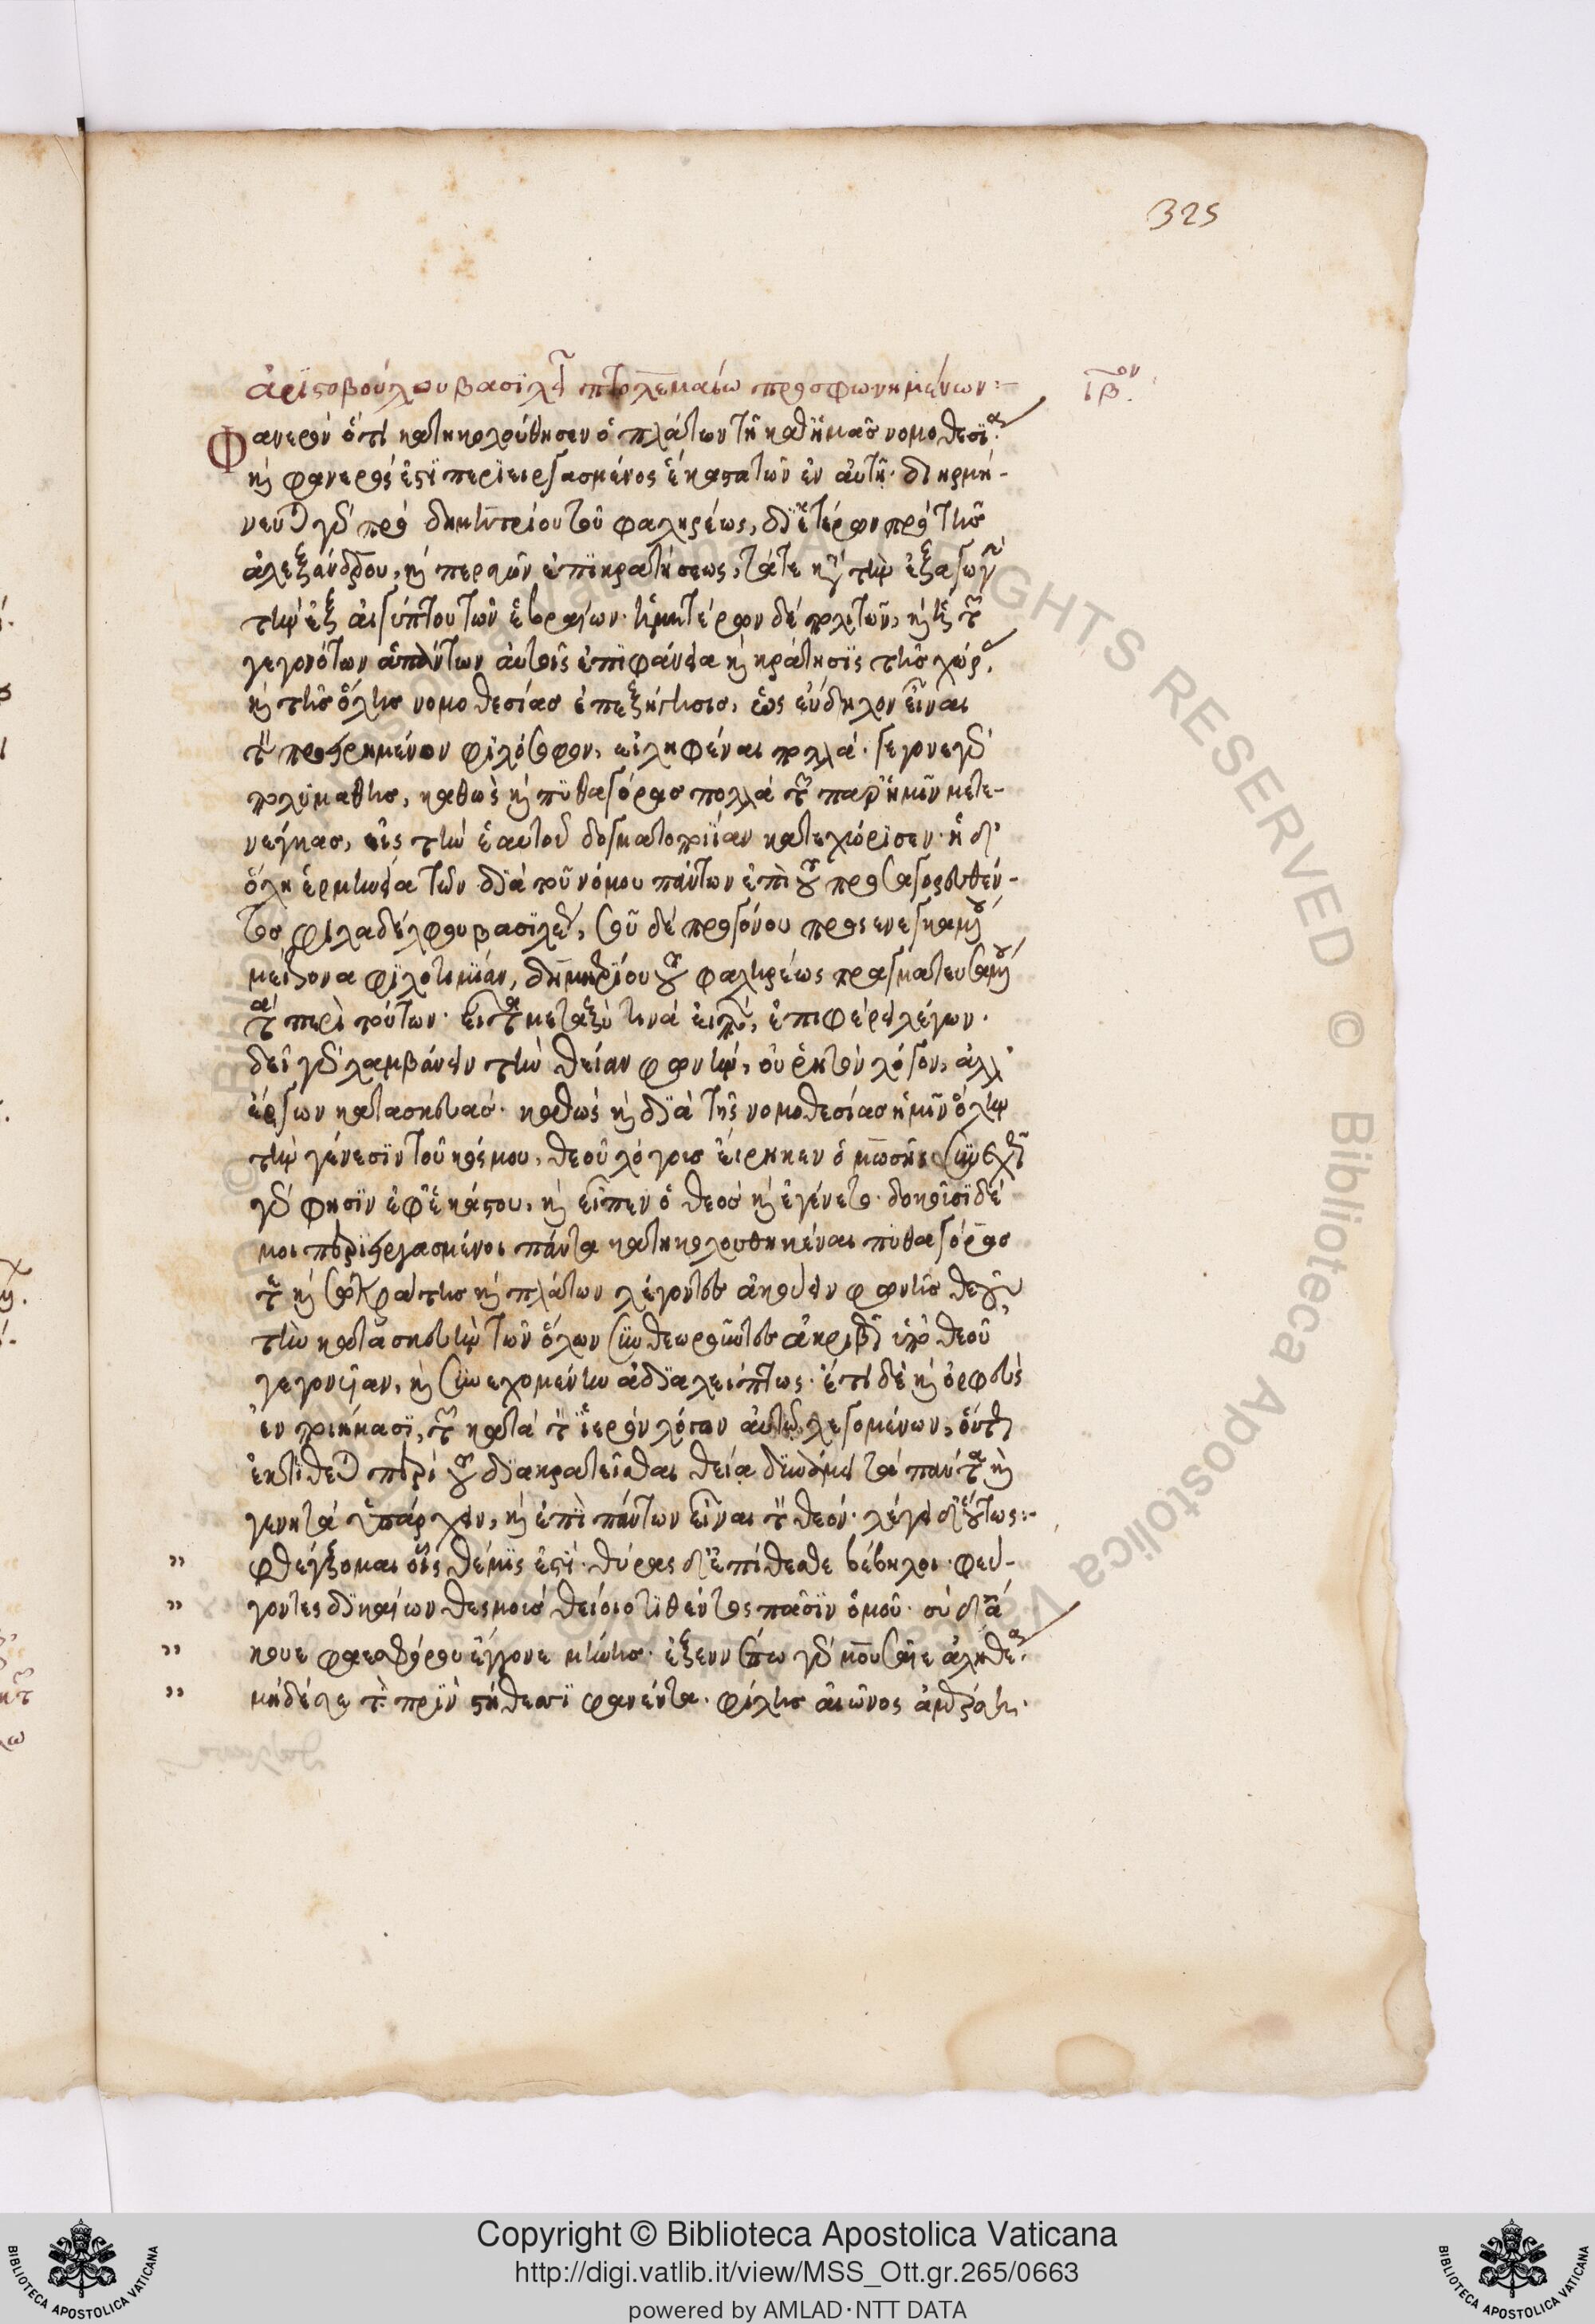 325
ἀριστοβούλου βασιλεῖ πτολεμαίω προσφωνημένων:
ιβον
Φανερὸν ὅτι κατηκολούθησεν ὁ πλάτων τῆ καθ' ἡμᾶς νομοθεσία.
καὶ φανερός ἐστι περιειργασμένος ἕκαστα τῶν ἐν αὐτῆ. διηρμή-
νευται γὰρ πρὸ δημητρίου τοῦ φαληρέως, δι' ἑτέρων πρὸ τῆς
ἀλεξάνδρου, καὶ περσῶν ἐπικρατήσεως, τά τε κατὰ τὴν ἐξαγωγὴν
τὴν ἐξ αἰγύπτου τῶν ἑβραίων ἡμετέρων δὲ πολιτῶν, καὶ ἡ τῶν
γεγονότων ἁπάντων αὐτοῖς ἐπιφάνεια καὶ κράτησις τῆς χώρας.
καὶ τῆς ὅλης νομοθεσίας ἐπεξήγησις, ὡς εὔδηλον εἶναι
τὸν προειρημένον φιλόσοφον, εἰληφέναι πολλά. γέγονε γὰρ
πολυμαθὴς, καθὼς καὶ πυθαγόρας πολλὰ τῶν παρ' ἡμῖν μετε-
νέγκας, εἰς τὴν ἑαυτοῦ δογματοποιίαν κατεχώρισεν. ἡ δ'
ὅλη ἑρμηνεία τῶν διὰ τοῦ νόμου πάντων ἐπὶ τοῦ προσαγορευθέν-
τος φιλαδέλφου βασιλέως, σοῦ δὲ προγόνου προσενεγκαμένου
μείζονα φιλοτιμίαν, δημητρίου τοῦ φαληρέως πραγματευσαμένου
τὰ περὶ τούτων. εἶτα μεταξύ τινα εἰπὼν, ἐπιφέρει λέγων.
δεῖ γὰρ λαμβάνειν τὴν θείαν φωνὴν, οὐ ῥητὸν λόγον, ἀλλ'
ἔργων κατασκευάς. καθὼς καὶ διὰ τῆς νομοθεσίας ἡμῖν ὅλην
τὴν γένεσιν τοῦ κόσμου, θεοῦ λόγοις εἴρηκεν ὁ μωσῆς συνεχῶς
γάρ φησιν ἐφ' ἑκάστου, καὶ εἶπεν ὁ θεὸς καὶ ἐγένετο. δοκοῦσι δέ
μοι περιειργασμένοι πάντα κατηκολουθηκέναι πυθαγόρας
τε καὶ σωκράτης καὶ πλάτων λέγοντες ἀκούειν φωνῆς θεοῦ,
τὴν κατασκευὴν τῶν ὅλων συνθεωροῦντες ἀκριβῶς ὑπὸ θεοῦ
γεγονυῖαν, καὶ συνεχομένην ἀδιαλείπτως. ἔτι δὲ καὶ ὀρφεὺς
ἐν ποιήμασι, τῶν κατὰ τὸν ἱερὸν λόγον αὐτῷ λεγομένων, οὕτως
ἐκτίθεται περὶ τοῦ διακρατεῖσθαι θεία δυνάμει τὰ πάντα καὶ
γενητὰ ὑπάρχειν, καὶ ἐπὶ πάντων εἶναι τὸν θεόν. λέγει δ' οὕτως:
" φθέγξομαι οἷς θέμις ἐστί. θύρας δ' ἐπίθεσθε βέβηλοι. φεύ-
" γοντες δικαίων θεσμοὺς θείοιο τιθέντος πᾶσιν ὁμοῦ. σὺ δ' ἄ
" κουε φαεσφόρου ἔγγονε μήνης. ἐξενέπω γὰρ μουσαῖε ἀληθέα.
" μηδέ σε τὰ πρὶν στήθεσι φανέντα. φίλης αἰῶνος ἀμέρση.